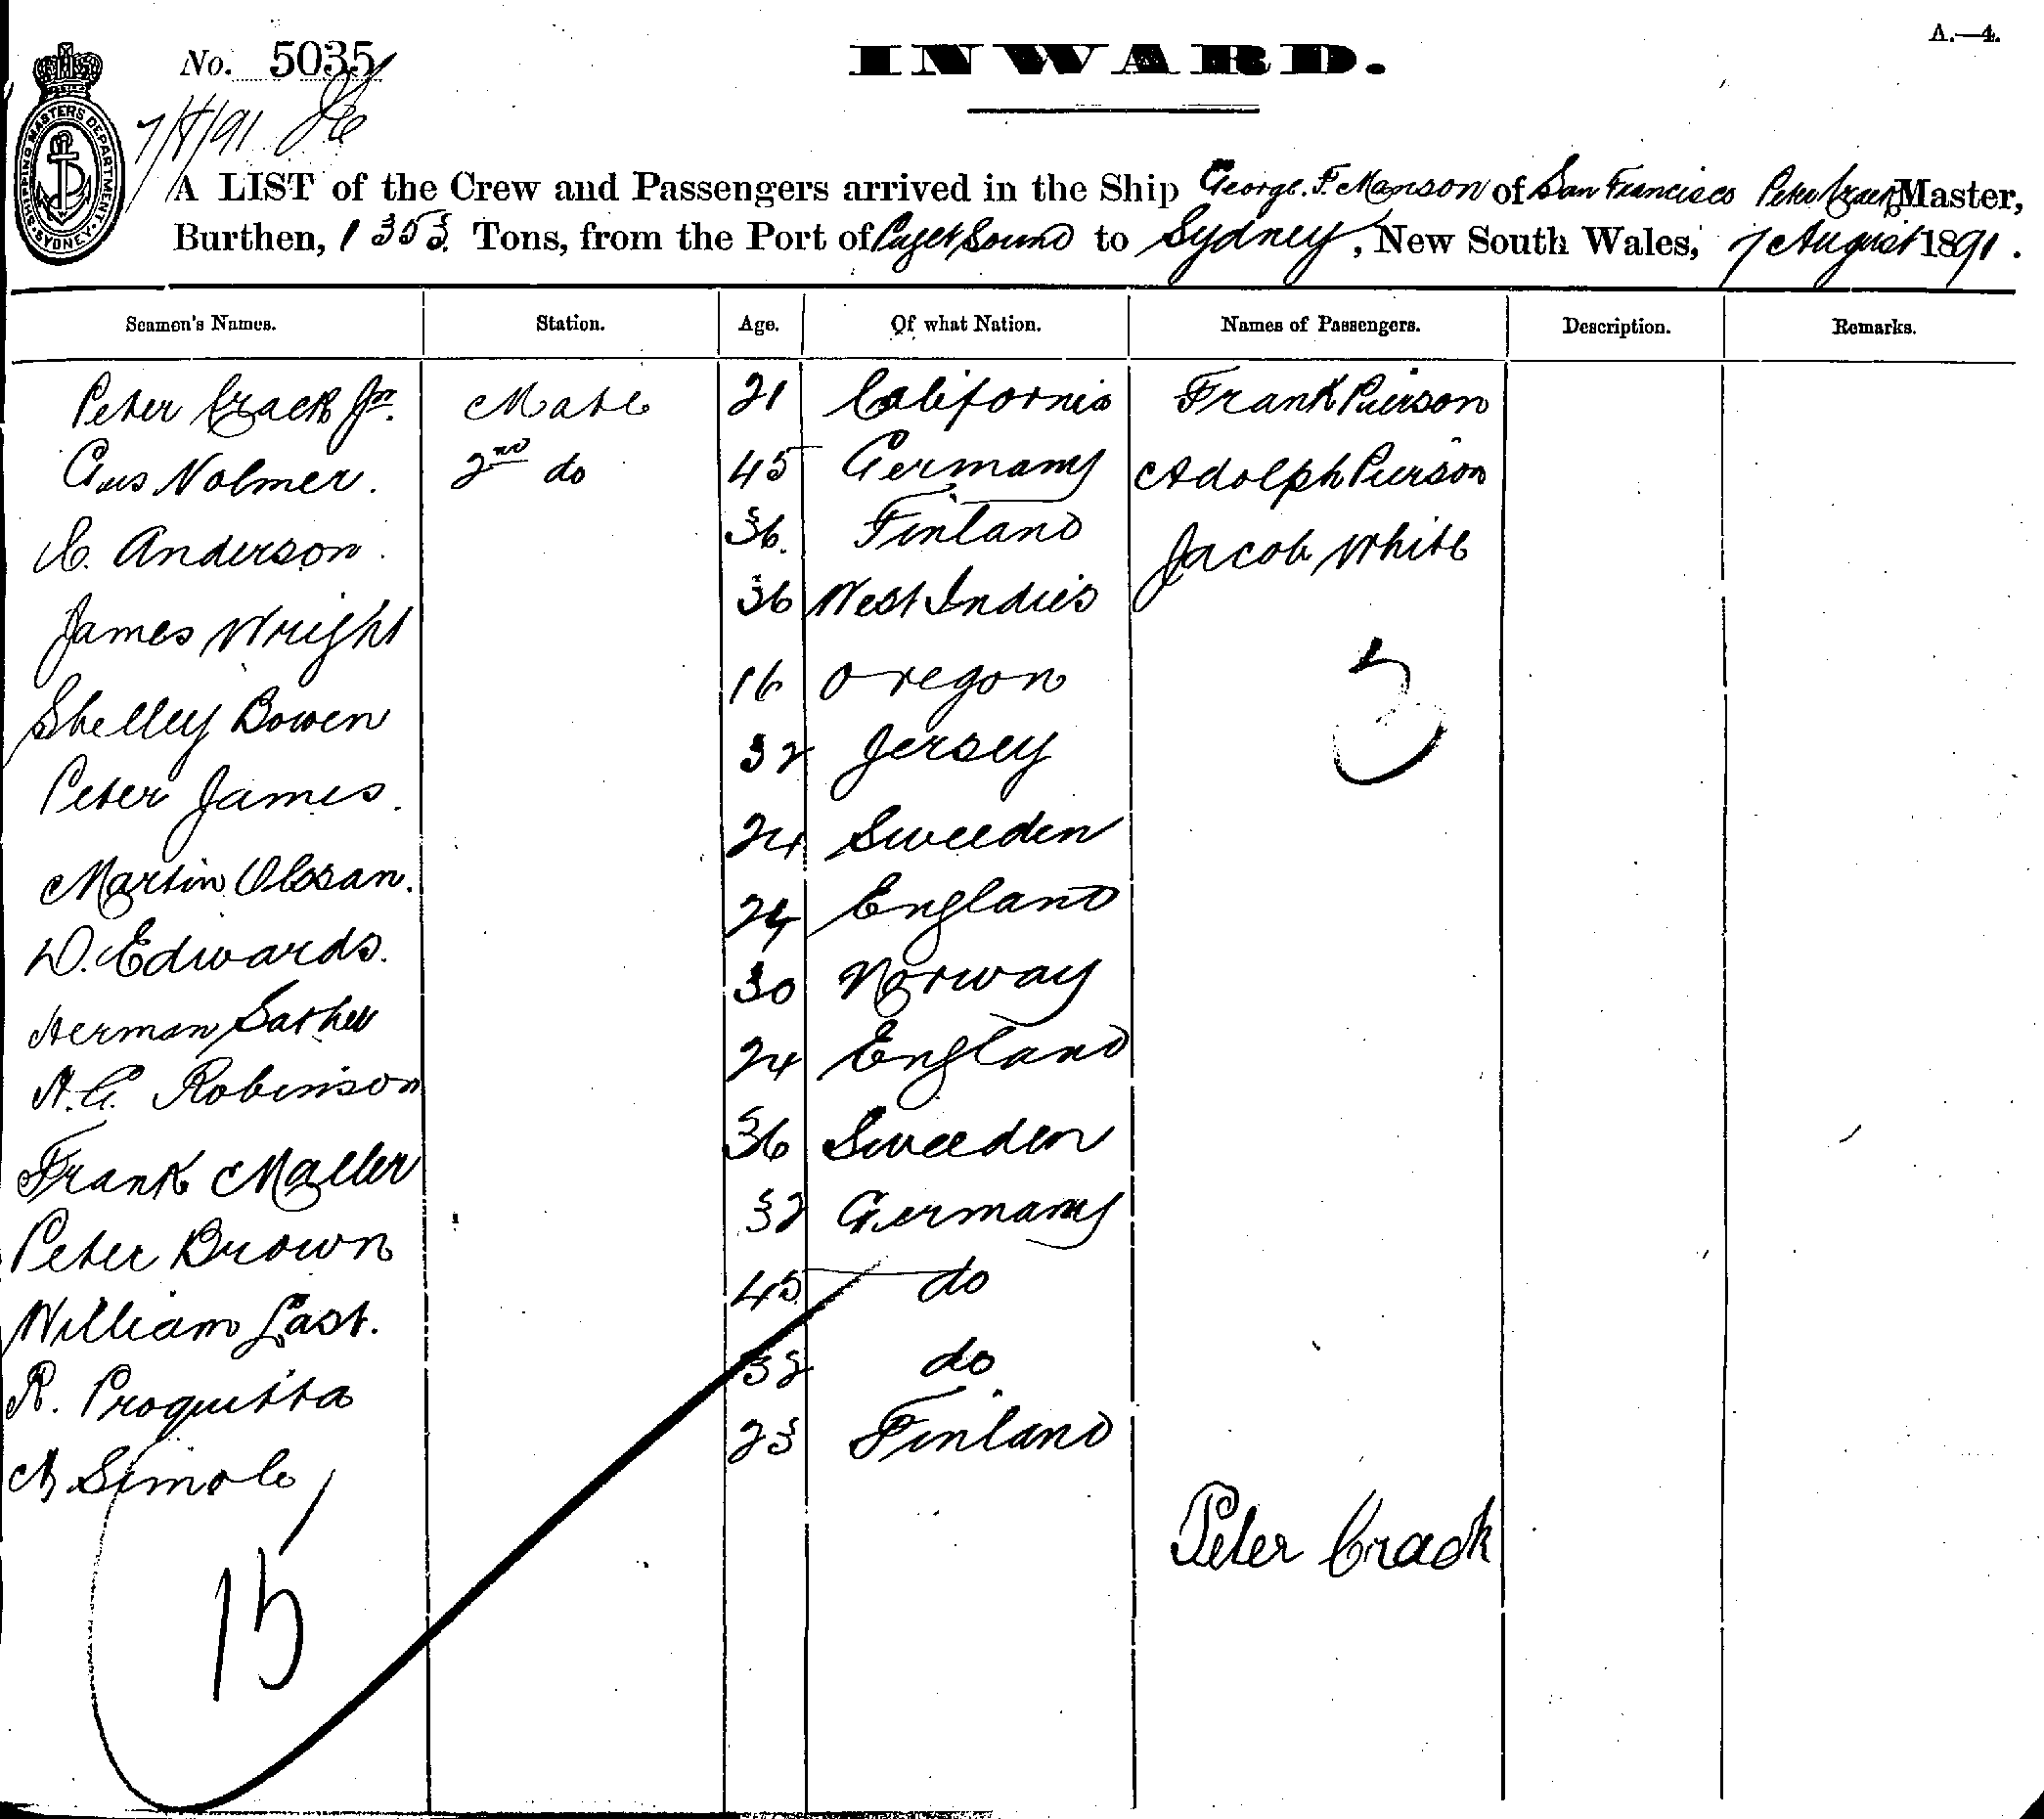 A.—4.
No. 5035
INWARD.
7/8/91
SHIPPING MASTERS DEPARTMENT SYDNEY
A LIST of the Crew and Passengers arrived in the Ship George. F. Manson of San Francisco Peter Crack Master,
Burthen, 1353. Tons, from the Port of Puget Sound to Sydney, New South Wales, 7 August 1891.
Seamen's Names. Station. Age. Of what Nation. Names of Passengers. Description. Remarks.
Peter Crack Jnr. Mate 21 California Frank Pierson
Gus Nolmer. 2nd do 45 Germany Adolph Pierson
C. Anderson. 36. Finland Jacob White
James Wright 36 West Indies
Shelley Bowen 16 Oregon
Peter James. 32 Jersey
3
Martin Olosan. 24 Sweeden
D. Edwards. 24 England
Herman 30 Norway
A. G. Robinson 24 England
Frank Maller 36 Sweeden
Peter Brown 32 Germany
William Last. 45 do
R. Proquitta 32 do
Simole 23 Finland
Peter Crack
15